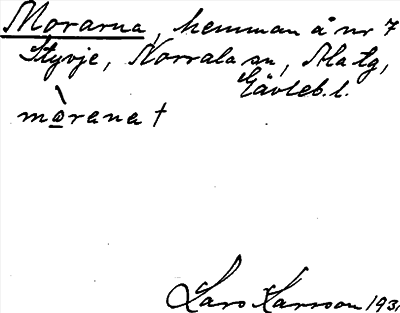 Morarna, hemman å nr 7
Styvje, Norrala sn, Ala tg,
Gävleb. l.
mòrana †
Lars Larsson 193